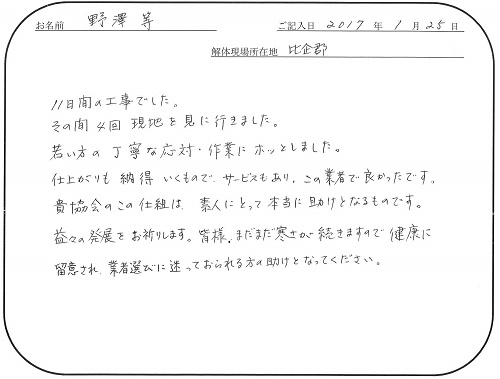 お名前 野澤 等 ご記入日 2017 年 1 月 25 日
解体現場所在地 比企郡
11日間の工事でした。
その間 4回 現地を見に行きました。
若い方の 丁寧な応対・作業に ホッとしました。
仕上がりも 納得 いくもので、サービスもあり、この業者で良かったです。
貴協会のこの仕組は、素人にとって本当に助けとなるものです。
益々の発展をお祈りします。皆様、まだまだ寒さが続きますので健康に
留意され、業者選びに迷っておられる方の助けとなってください。